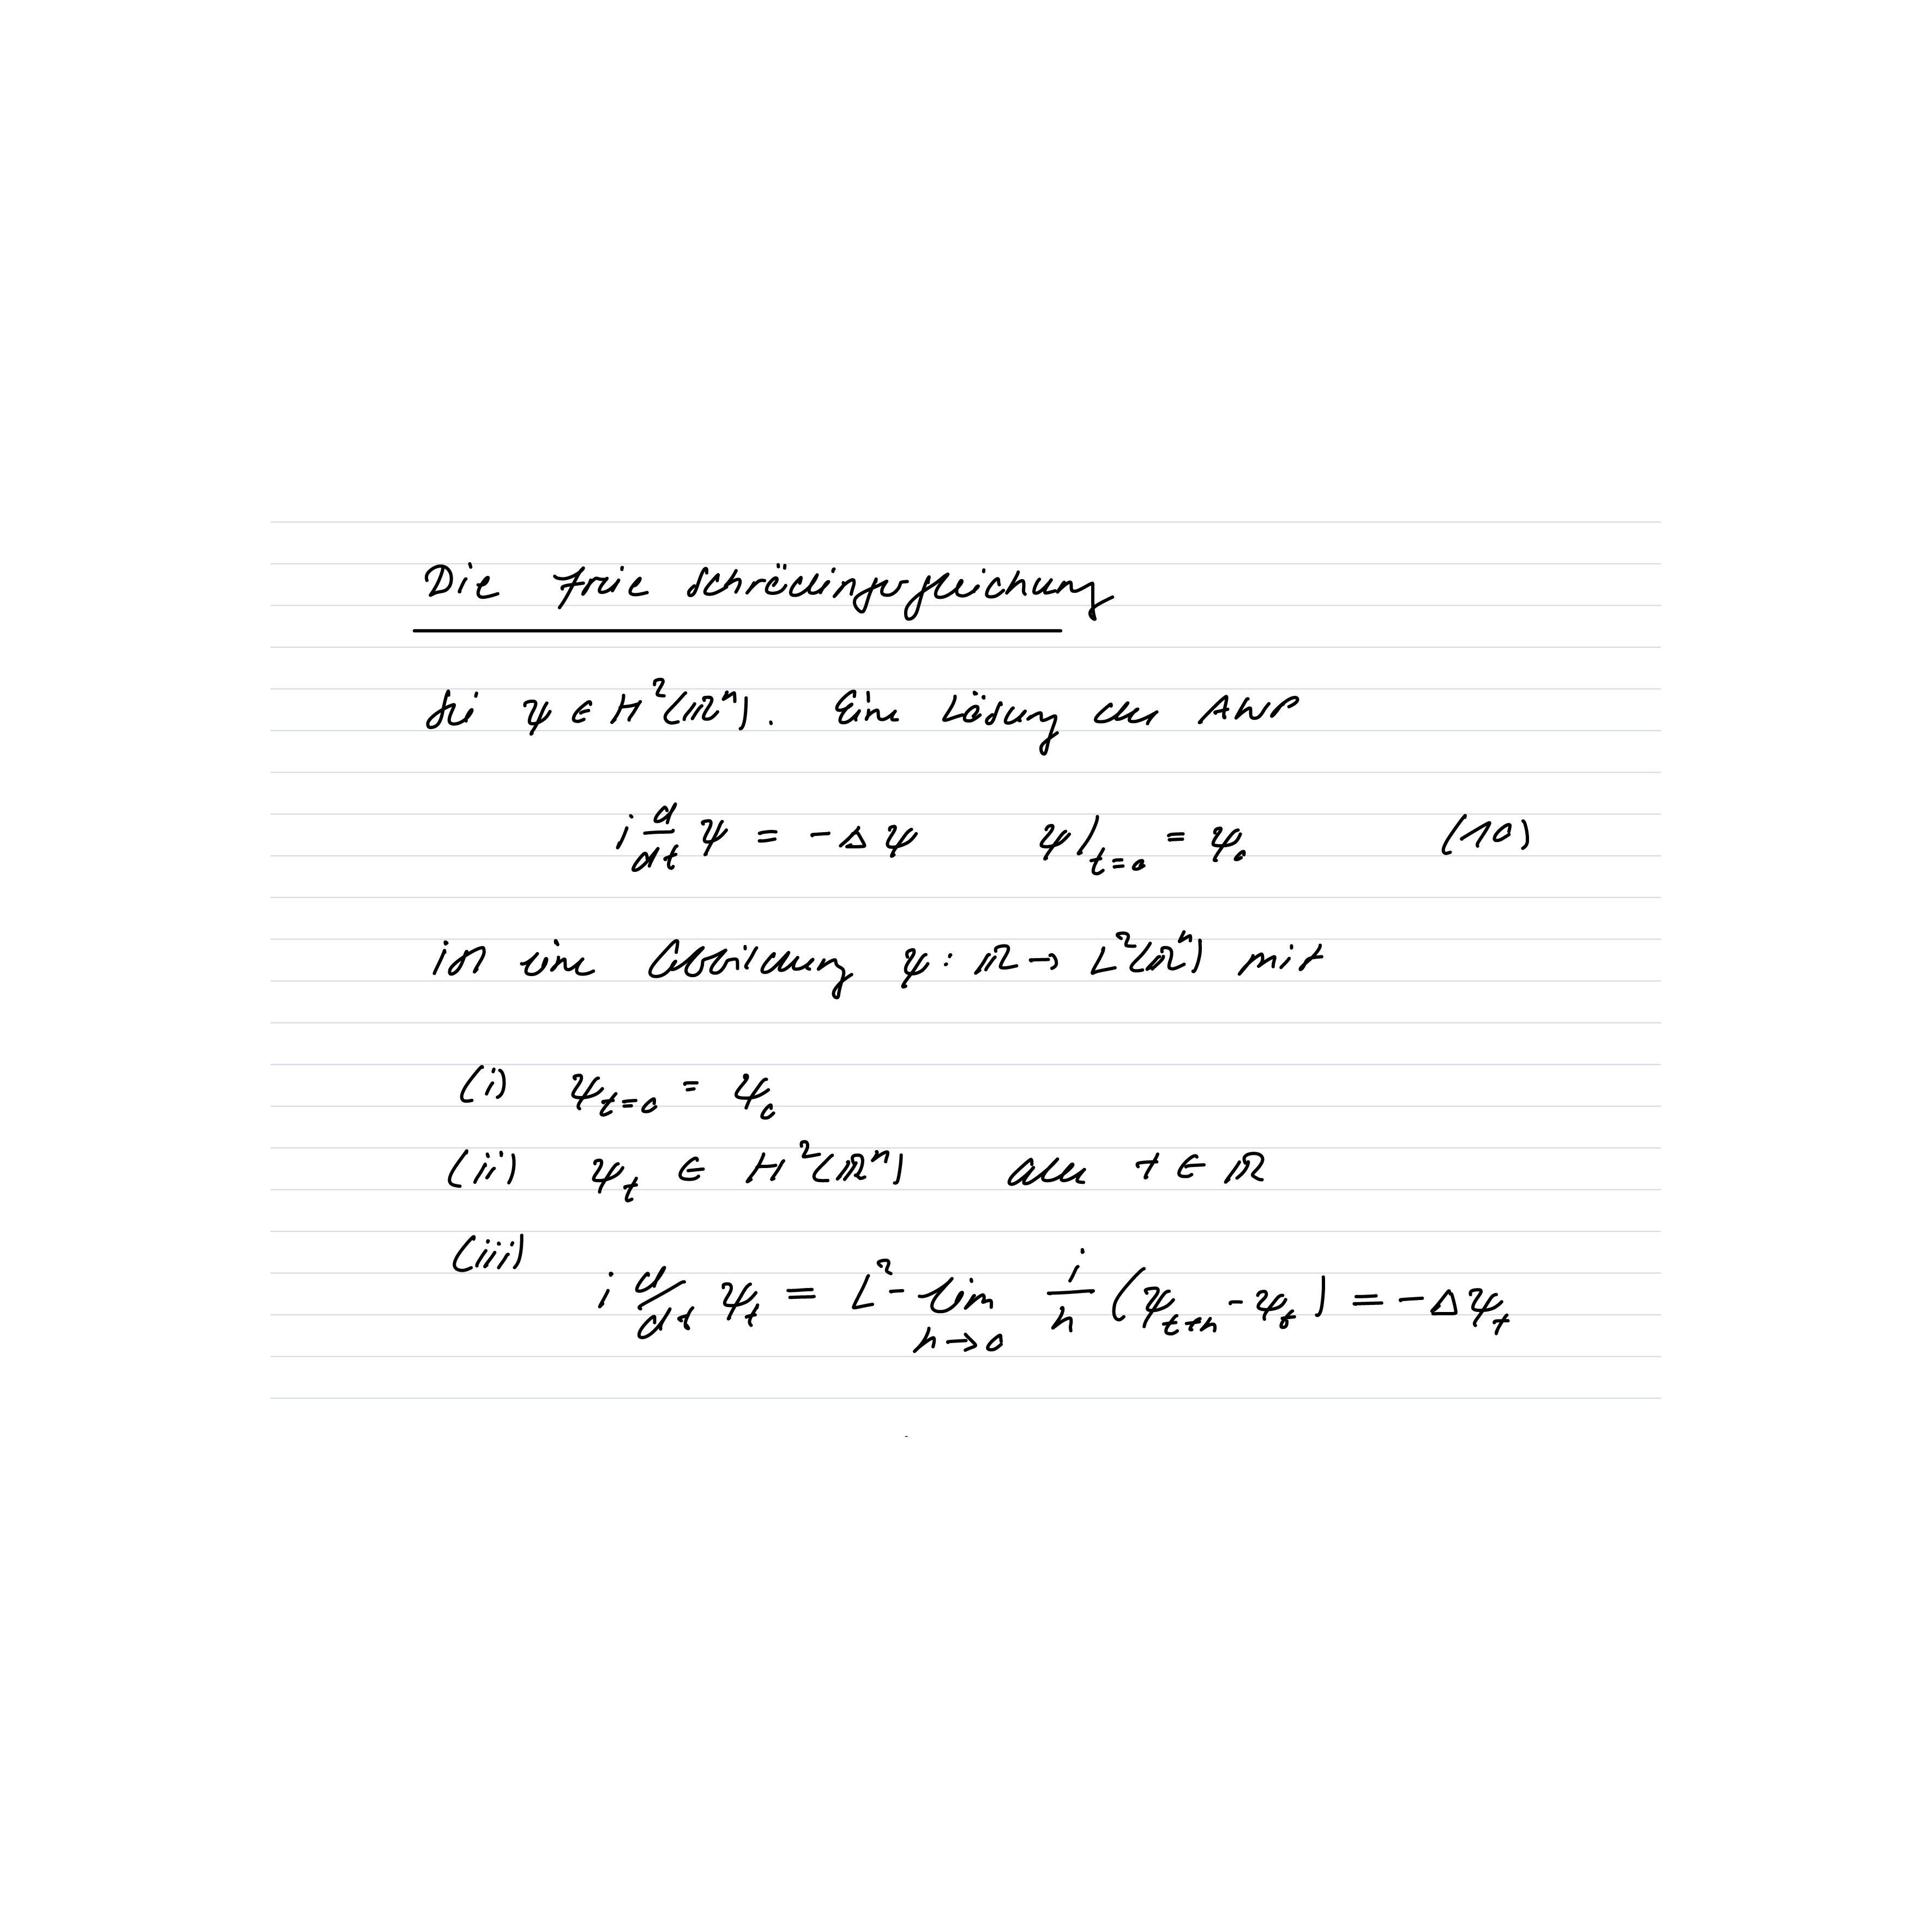 Die freie Schrödingergleichung
Sei ψ ∈ H²(ℝⁿ). Eine Lösung des AWP
i d/dt ψ = -Δψ ψ|_{t=0} = ψ₀ (10)
ist eine Abbildung ψ: ℝ → L²(ℝⁿ) mit
(i) ψ_{t=0} = ψ₀
(ii) ψ_t ∈ H²(ℝⁿ) alle t ∈ ℝ
(iii) i d/dt ψ_t = L²-lim_{h→0} i/h (ψ_{t+h} - ψ_t) = -Δψ_t